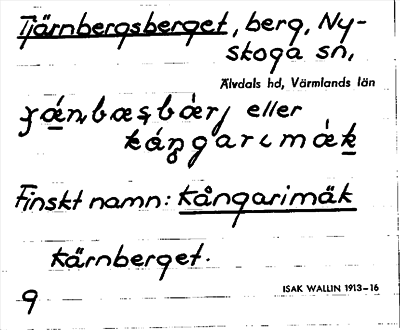 Tjärnbergsberget, berg, Ny-
skoga sn,
Älvdals hd, Värmlands län
eller
Finskt namn: Kångarimäk
Kärnberget.
9
ISAK WALLIN 1913–16